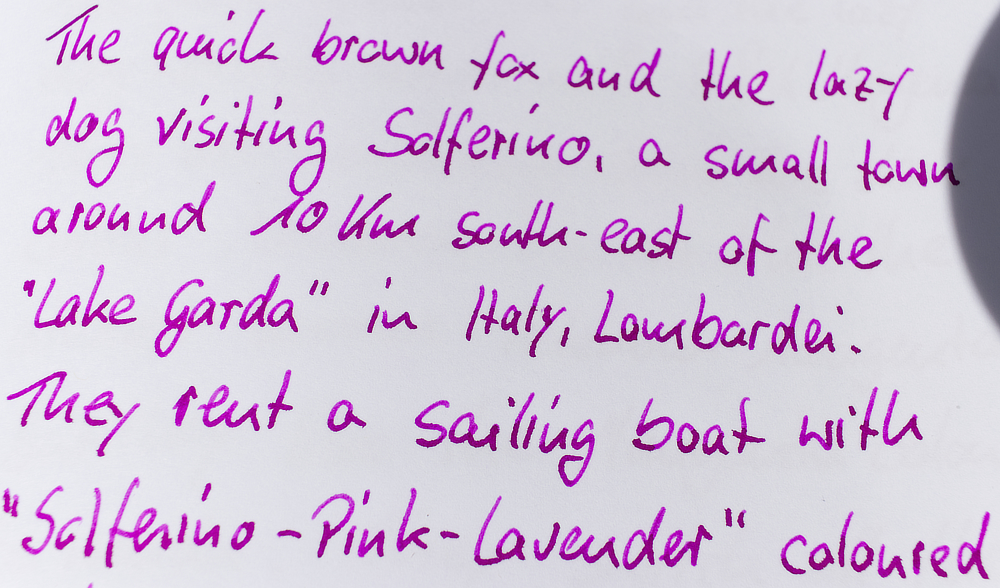 The quick brown fox and the lazy
dog visiting Solferino, a small town
around 10 Km south-east of the
"Lake Garda" in Italy, Lombardei.
They rent a sailing boat with
"Solferino-Pink-Lavender" coloured